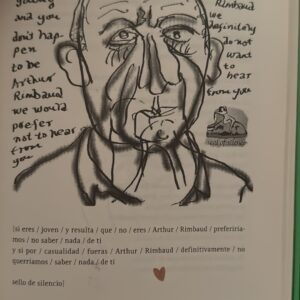 young
and you
don't hap
pen
to be
Arthur
Rimbaud
we would
prefer
not to hear
from
you
Rimbaud
we
definitely
do not
want
to
hear
from you
seal of silence
[si eres / joven / y resulta / que / no / eres / Arthur / Rimbaud / preferiría-
mos / no saber / nada / de ti
y si por / casualidad / fueras / Arthur / Rimbaud / definitivamente / no
querríamos / saber / nada / de ti
sello de silencio]